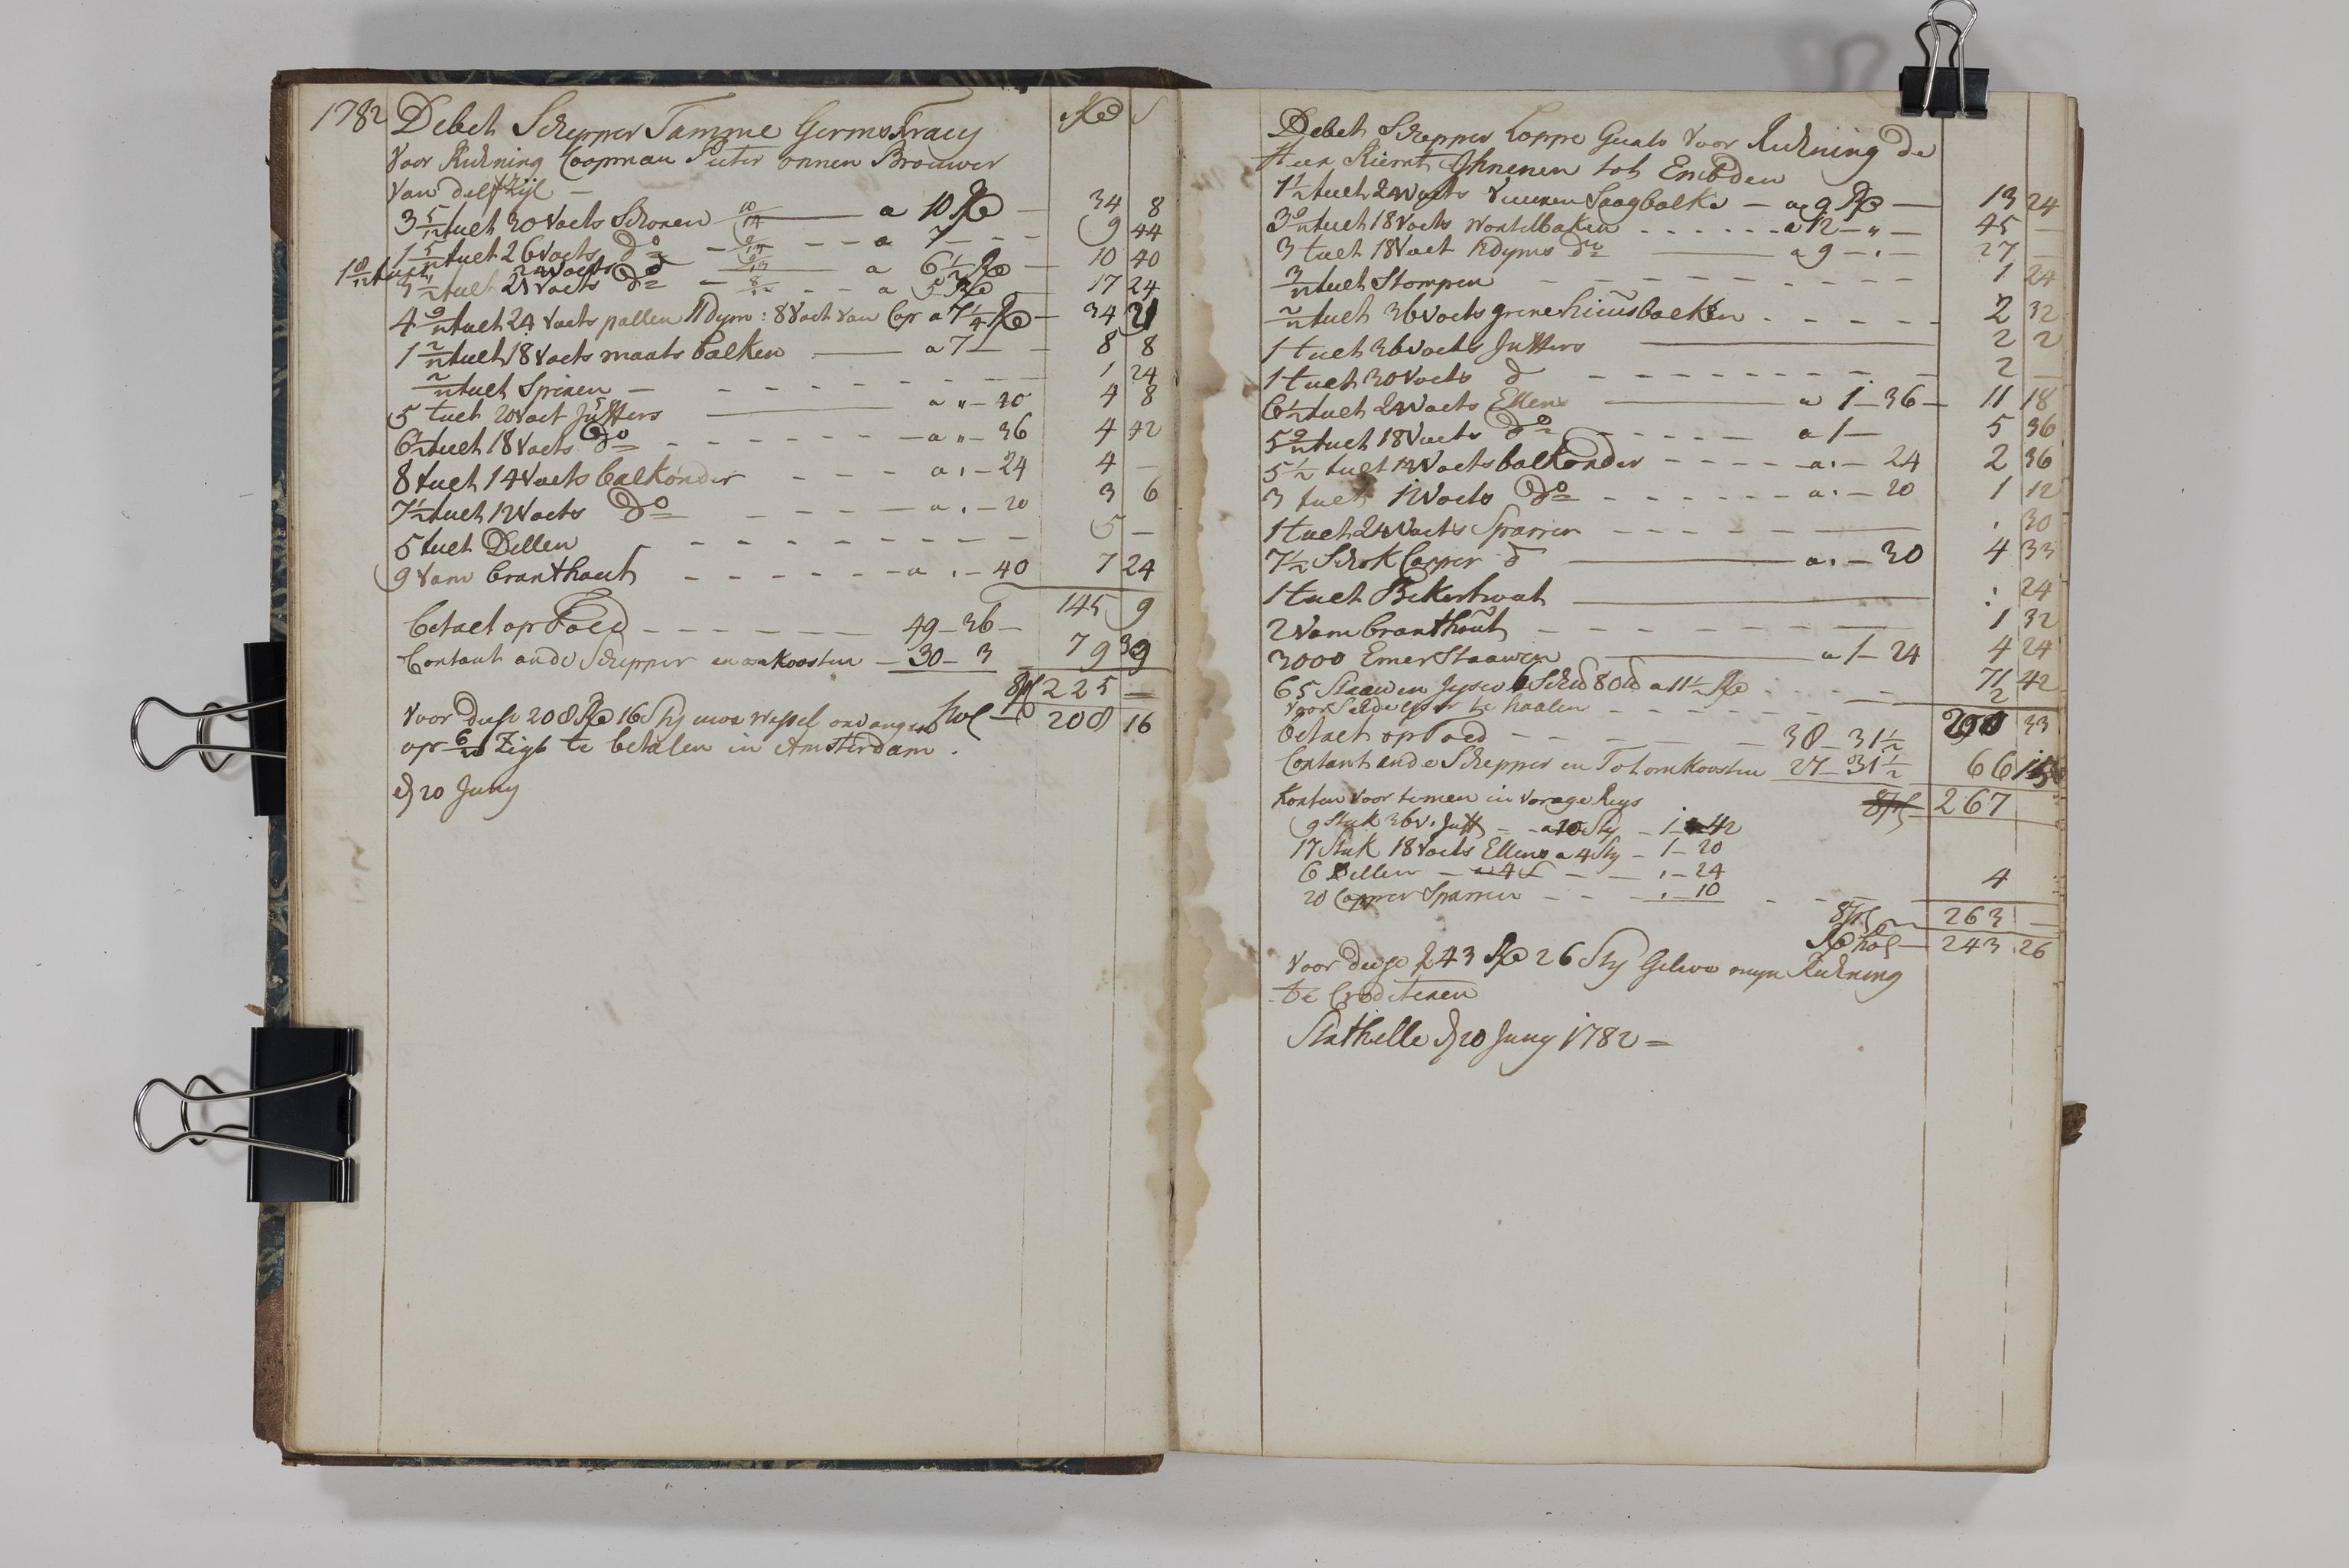 1782 Debet Schipper Tamme Germs Tracy Rd S
Voor Rickning Coopman Pieter onnen Brouwer
Van delfzijl —
3 5/12 tuelt 30 Voets Schoren 10/14 — a 10 Rd — 34 8
1 5/12 tuelt 26 Voets do — a 7 — 9 44
1 8/12 tuelt 24 Voets do — a 6 1/2 Rd — 10 40
3 1/2 tuelt 21 Voets do — a 5 Rd 17 24
4 9/12 tuelt 24 Voets pallen 11 Dym : 8 Voet Van Cap a 7 1/4 Rd — 34 21
1 2/12 tuelt 18 Voets maats balken — a 7 — 8 8
2/12 tuelt Spiren — 1 24
5 tuelt 20 Voet Juffers — a " — 40 4 8
6 1/2 tuelt 18 Voets do — a " — 36 4 42
8 tuelt 14 Voets balkonder — a . — 24 4 —
7 1/2 tuelt 12 Voets do — a . — 20 3 6
5 tuelt Dellen — 5 —
9 Vam branthout — a . — 40 7 24
145 9
betaelt op Toed — 49 — 36 —
Contant an de Schipper en onkoosten — 30 — 3 79 39
225 —
Voor diese 208 Rd 16 Sty uwe Wessel ontvangen hol — 208 16
op Zigt te betalen in Amsterdam .
d 20 Juny
Debet Schipper Loppe Geerts Voor Rickning de
Heer Riemt Ohnenen tot Embden
1 1/2 tuelt 24 Voets Vuuren Saagbalke — a 9 Rd — 13 24
3 9/12 tuelt 18 Voets Wortelbalken — a 12 — " — 45 —
3 tuelt 18 Voet 12 dyms do — a 9 — . — 27 —
3/12 tuelt Stompen — 1 24
2/12 tuelt 36 Voets grine huusbalken — 2 32
1 tuelt 36 Voets Juffers — 2 2
1 tuelt 30 Voets d — 2 —
6 1/2 tuelt 24 Voets Ellens — a 1 — 36 — 11 18
5 9/12 tuelt 18 Voets do — a 1 — 5 36
5 1/2 tuelt 14 Voets balkonder — a . — 24 2 36
3 tuelt 12 Voets do — a . — 20 1 12
1 tuelt 24 Voets Sparren — . 30
7 1/2 Schok Capper d — a . — 30 4 33
1 tuelt Bekerhout — : 24
2 Vam branthout — 1 32
3000 Emerstaawen — a 1 — 24 4 24
65 Staawen Jyser 6 Schd 80 lb a 11 1/2 Rd 71 42
Voor Selde yser te haalen — 2
betaelt op Toed — 38 — 31 1/2 200 33
Contant an de Schipper en Tol onkoosten 27 — 31 1/2 66 15
Korten Voor temen in Vorage Reys 267
9 Stuk 36 v. Juff — a 10 Sty — 1 — 42
17 Stuk 18 Voets Ellens a 4 Sty — 1 — 20
6 Dellen — a 4 S — . — 24 4
20 Capper Sparren — . — 10
263 —
Rd hol — 243 26
Voor diese 243 Rd 26 Sty Gelive myn Rickning
te Crediteren
Stathelle d 20 Juny 1782 =